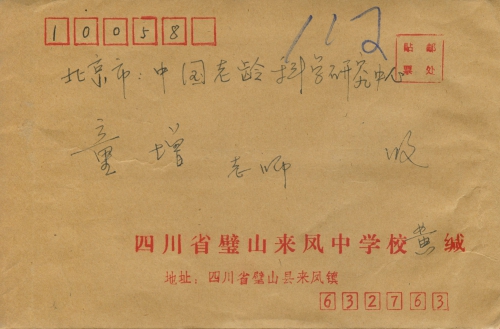 10058
112
贴邮
票处
北京市:中国老龄科学研究中心
童增老师 收
四川省璧山来凤中学校黄缄
地址:四川省璧山县来凤镇
632763